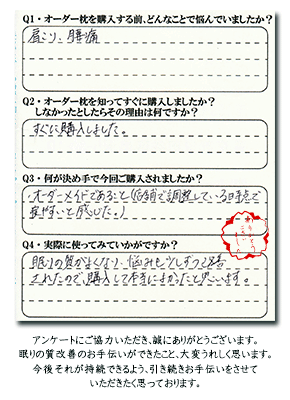 Q1・オーダー枕を購入する前、どんなことで悩んでいましたか?
肩こり、腰痛
Q2・オーダー枕を知ってすぐに購入しましたか?
しなかったとしたらその理由は何ですか?
すぐに購入しました。
Q3・何が決め手で今回ご購入されましたか?
オーダーメイドであること(店舗で調整している時点で
寝やすいと感じた。)
Q4・実際に使ってみていかがですか?
眠りの質がよくなり、悩みも少しずつ改善
されたので、購入して本当によかったと思います。
アンケートにご協力いただき、誠にありがとうございます。
眠りの質改善のお手伝いができたこと、大変うれしく思います。
今後それが持続できるよう、引き続きお手伝いをさせて
いただきたく思っております。